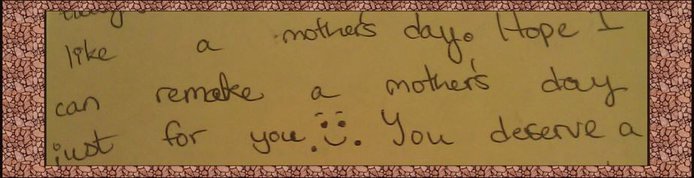 like a mother's day. Hope I
can remake a mother's day
just for you. You deserve a